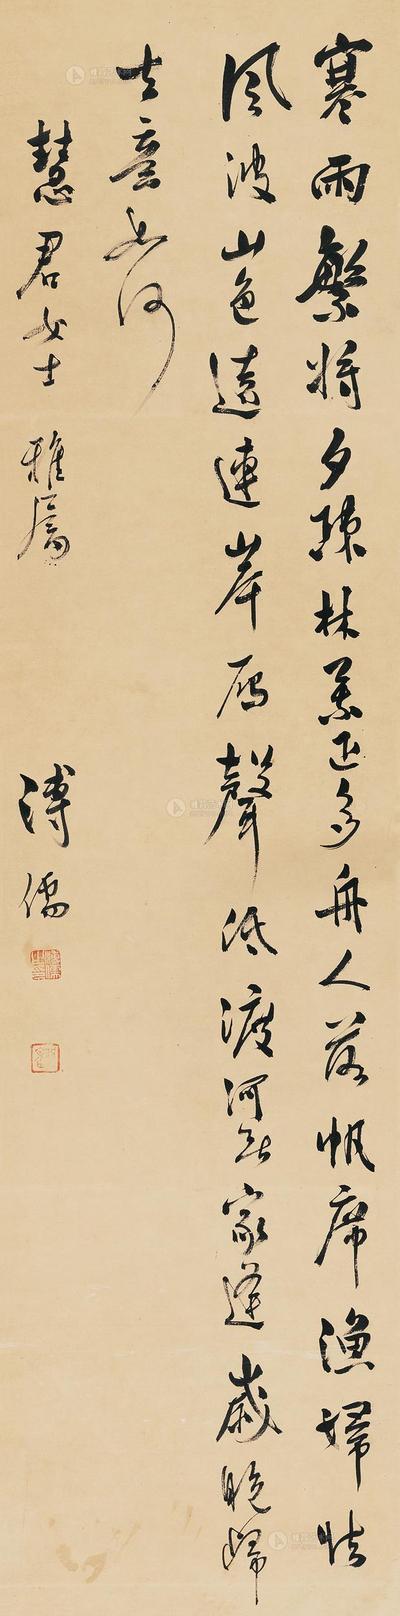 寒雨繁將夕疎林葉正多舟人落帆席漁婦怯
風波山色遠連岸雁聲低渡河無家逢歲晚歸
去意如何
慧君女士 雅屬
溥儒